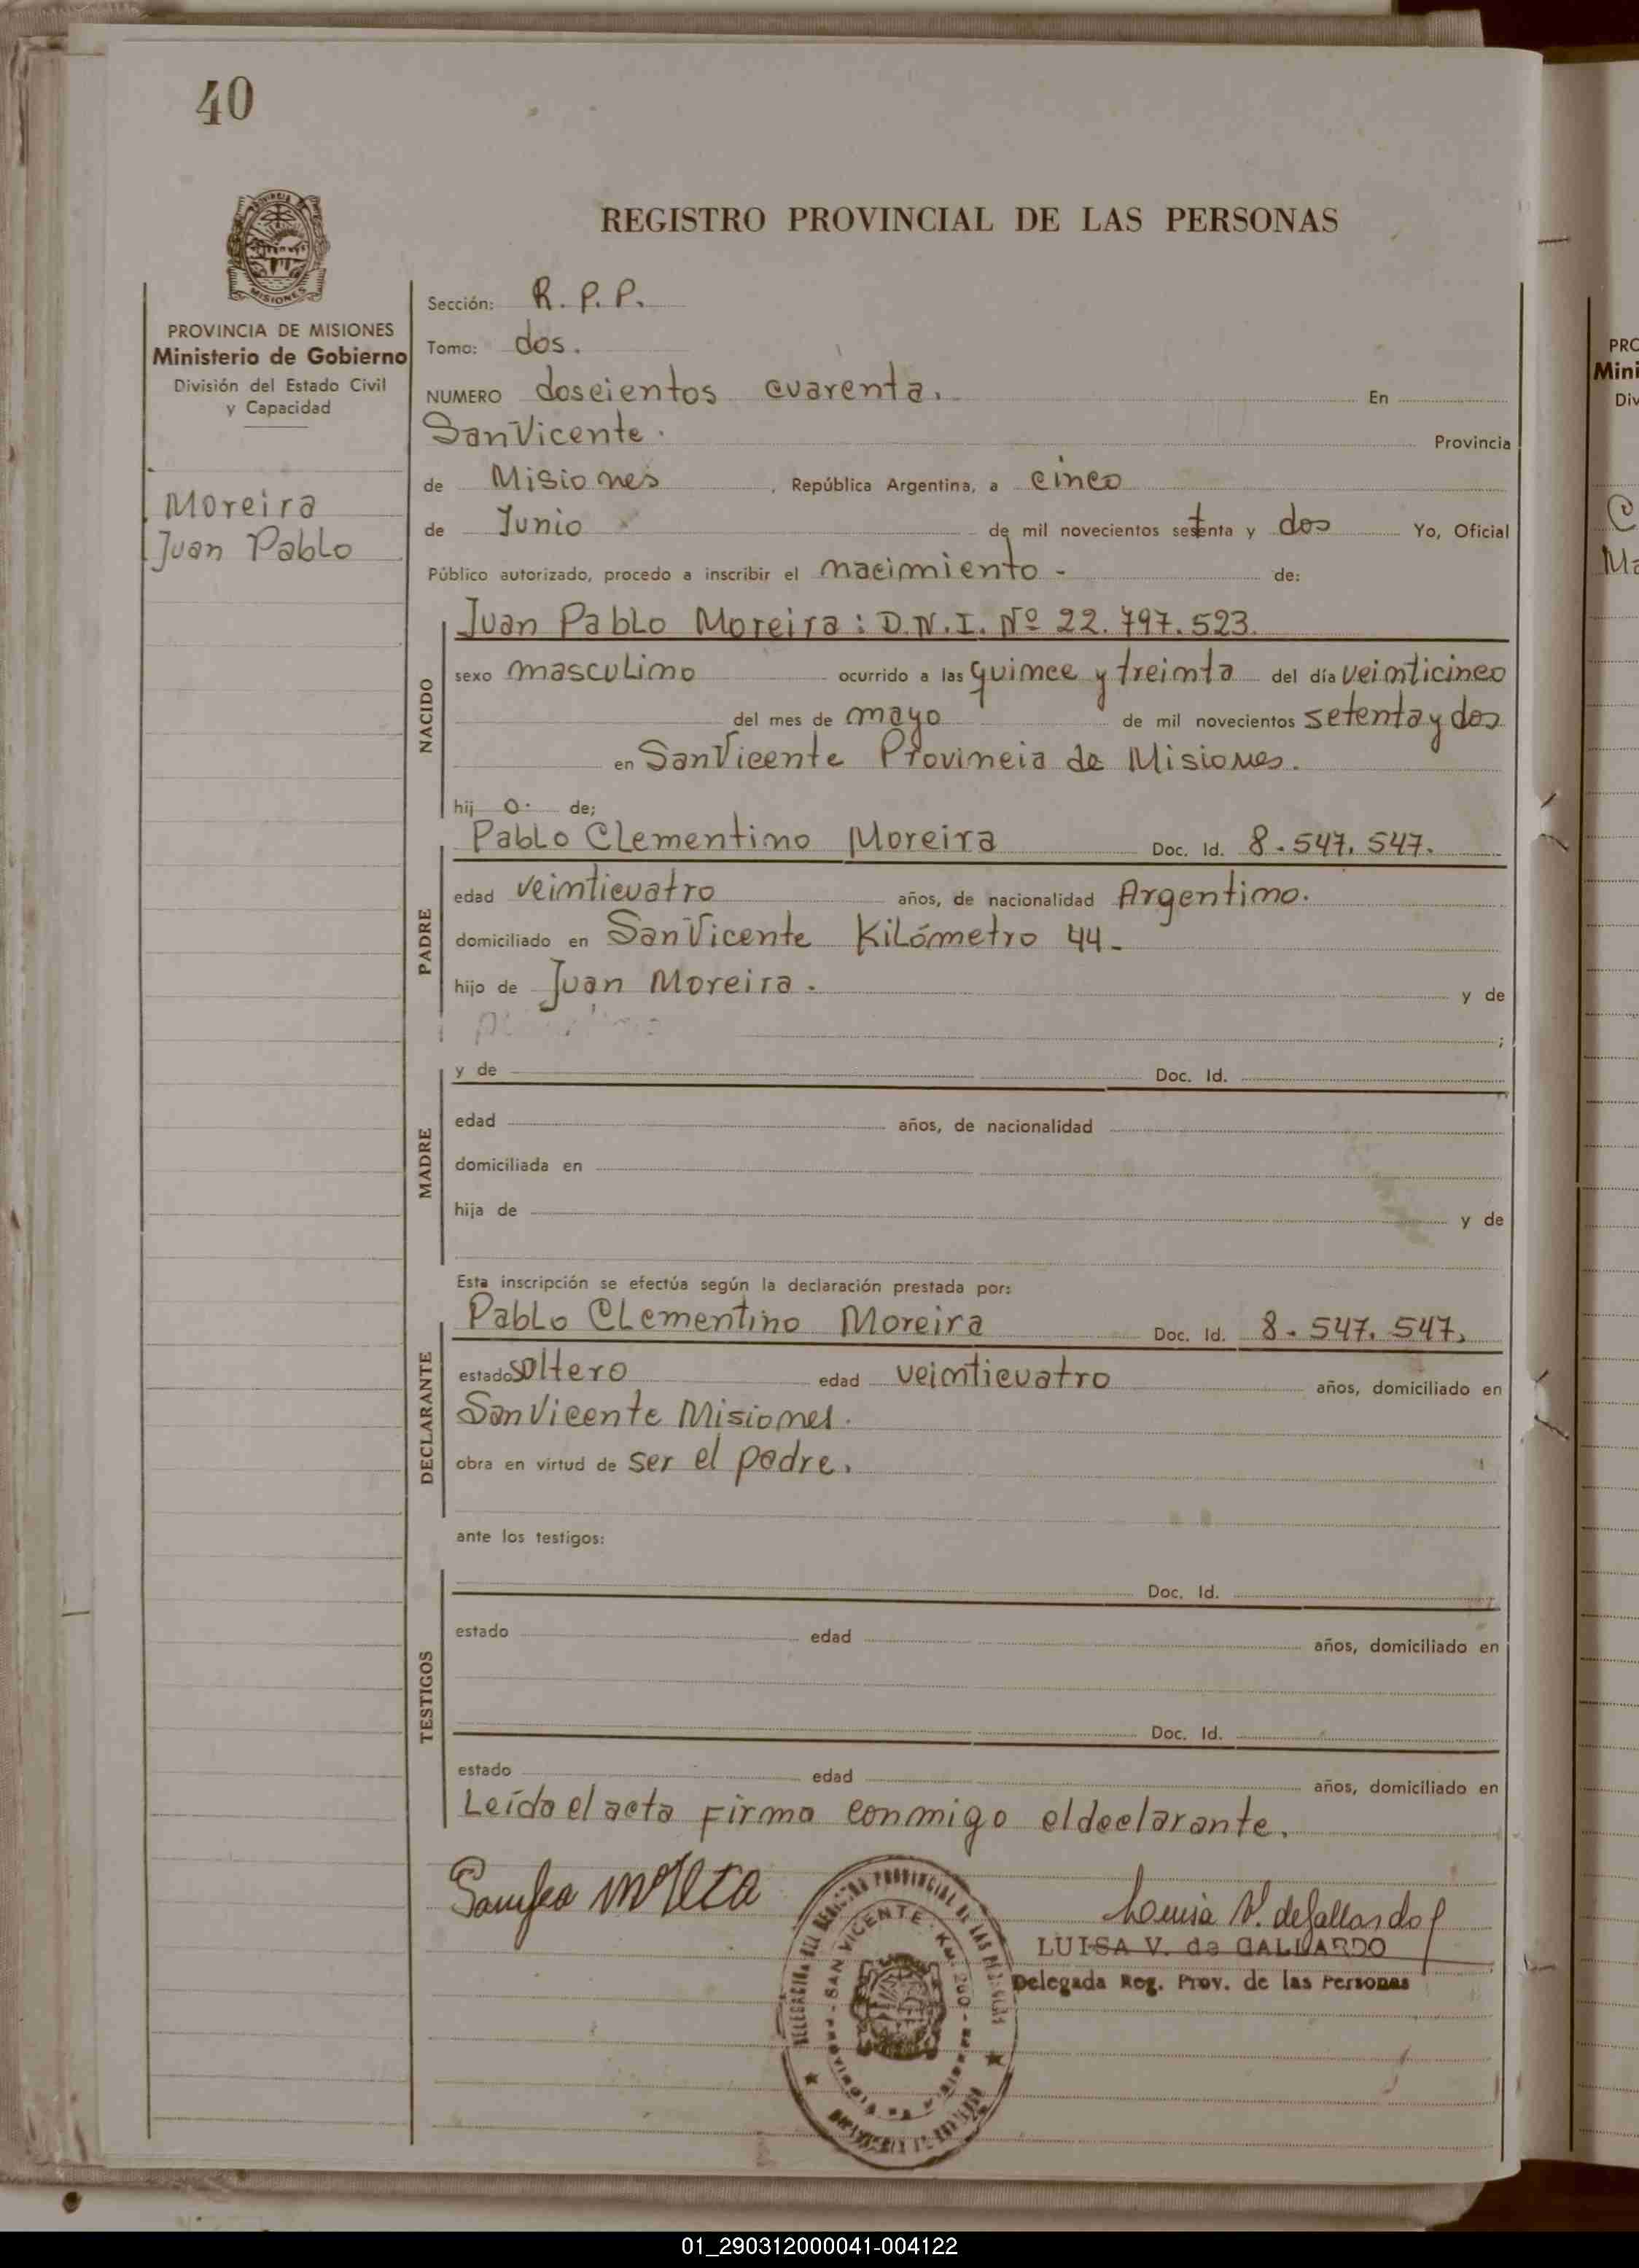 40
REGISTRO PROVINCIAL DE LAS PERSONAS
MISIONES
PROVINCIA DE MISIONES
Ministerio de Gobierno
División del Estado Civil
y Capacidad
Moreira
Juan Pablo
Sección: R. P. P.
Tomo: dos.
NUMERO doscientos cuarenta. En
San Vicente. Provincia
de Misiones, República Argentina, a cinco
de Junio de mil novecientos setenta y dos Yo, Oficial
Público autorizado, procedo a inscribir el nacimiento - de:
NACIDO
Juan Pablo Moreira: D.N.I. Nº 22.797.523.
sexo masculino ocurrido a las quince y treinta del día veinticinco
del mes de mayo de mil novecientos setenta y dos
en San Vicente Provincia de Misiones.
hij o. de;
PADRE
Pablo Clementino Moreira Doc. Id. 8.547.547.
edad veinticuatro años, de nacionalidad Argentino.
domiciliado en San Vicente Kilómetro 44-
hijo de Juan Moreira. y de
;
MADRE
y de Doc. Id.
edad años, de nacionalidad
domiciliada en
hija de y de
Esta inscripción se efectúa según la declaración prestada por:
DECLARANTE
Pablo Clementino Moreira Doc. Id. 8.547.547.
estado soltero edad veinticuatro años, domiciliado en
San Vicente Misiones.
obra en virtud de ser el padre.
ante los testigos:
TESTIGOS
Doc. Id.
estado edad años, domiciliado en
Doc. Id.
estado edad años, domiciliado en
Leído el acta firma conmigo el declarante.
Louisa V. de Gallardo
LUISA V. de GALLARDO
Delegada Reg. Prov. de las Personas
REGISTRO PROVINCIAL DE LAS PERSONAS
SAN VICENTE - Km. 260
PRO
Mini
Div
01_290312000041-004122